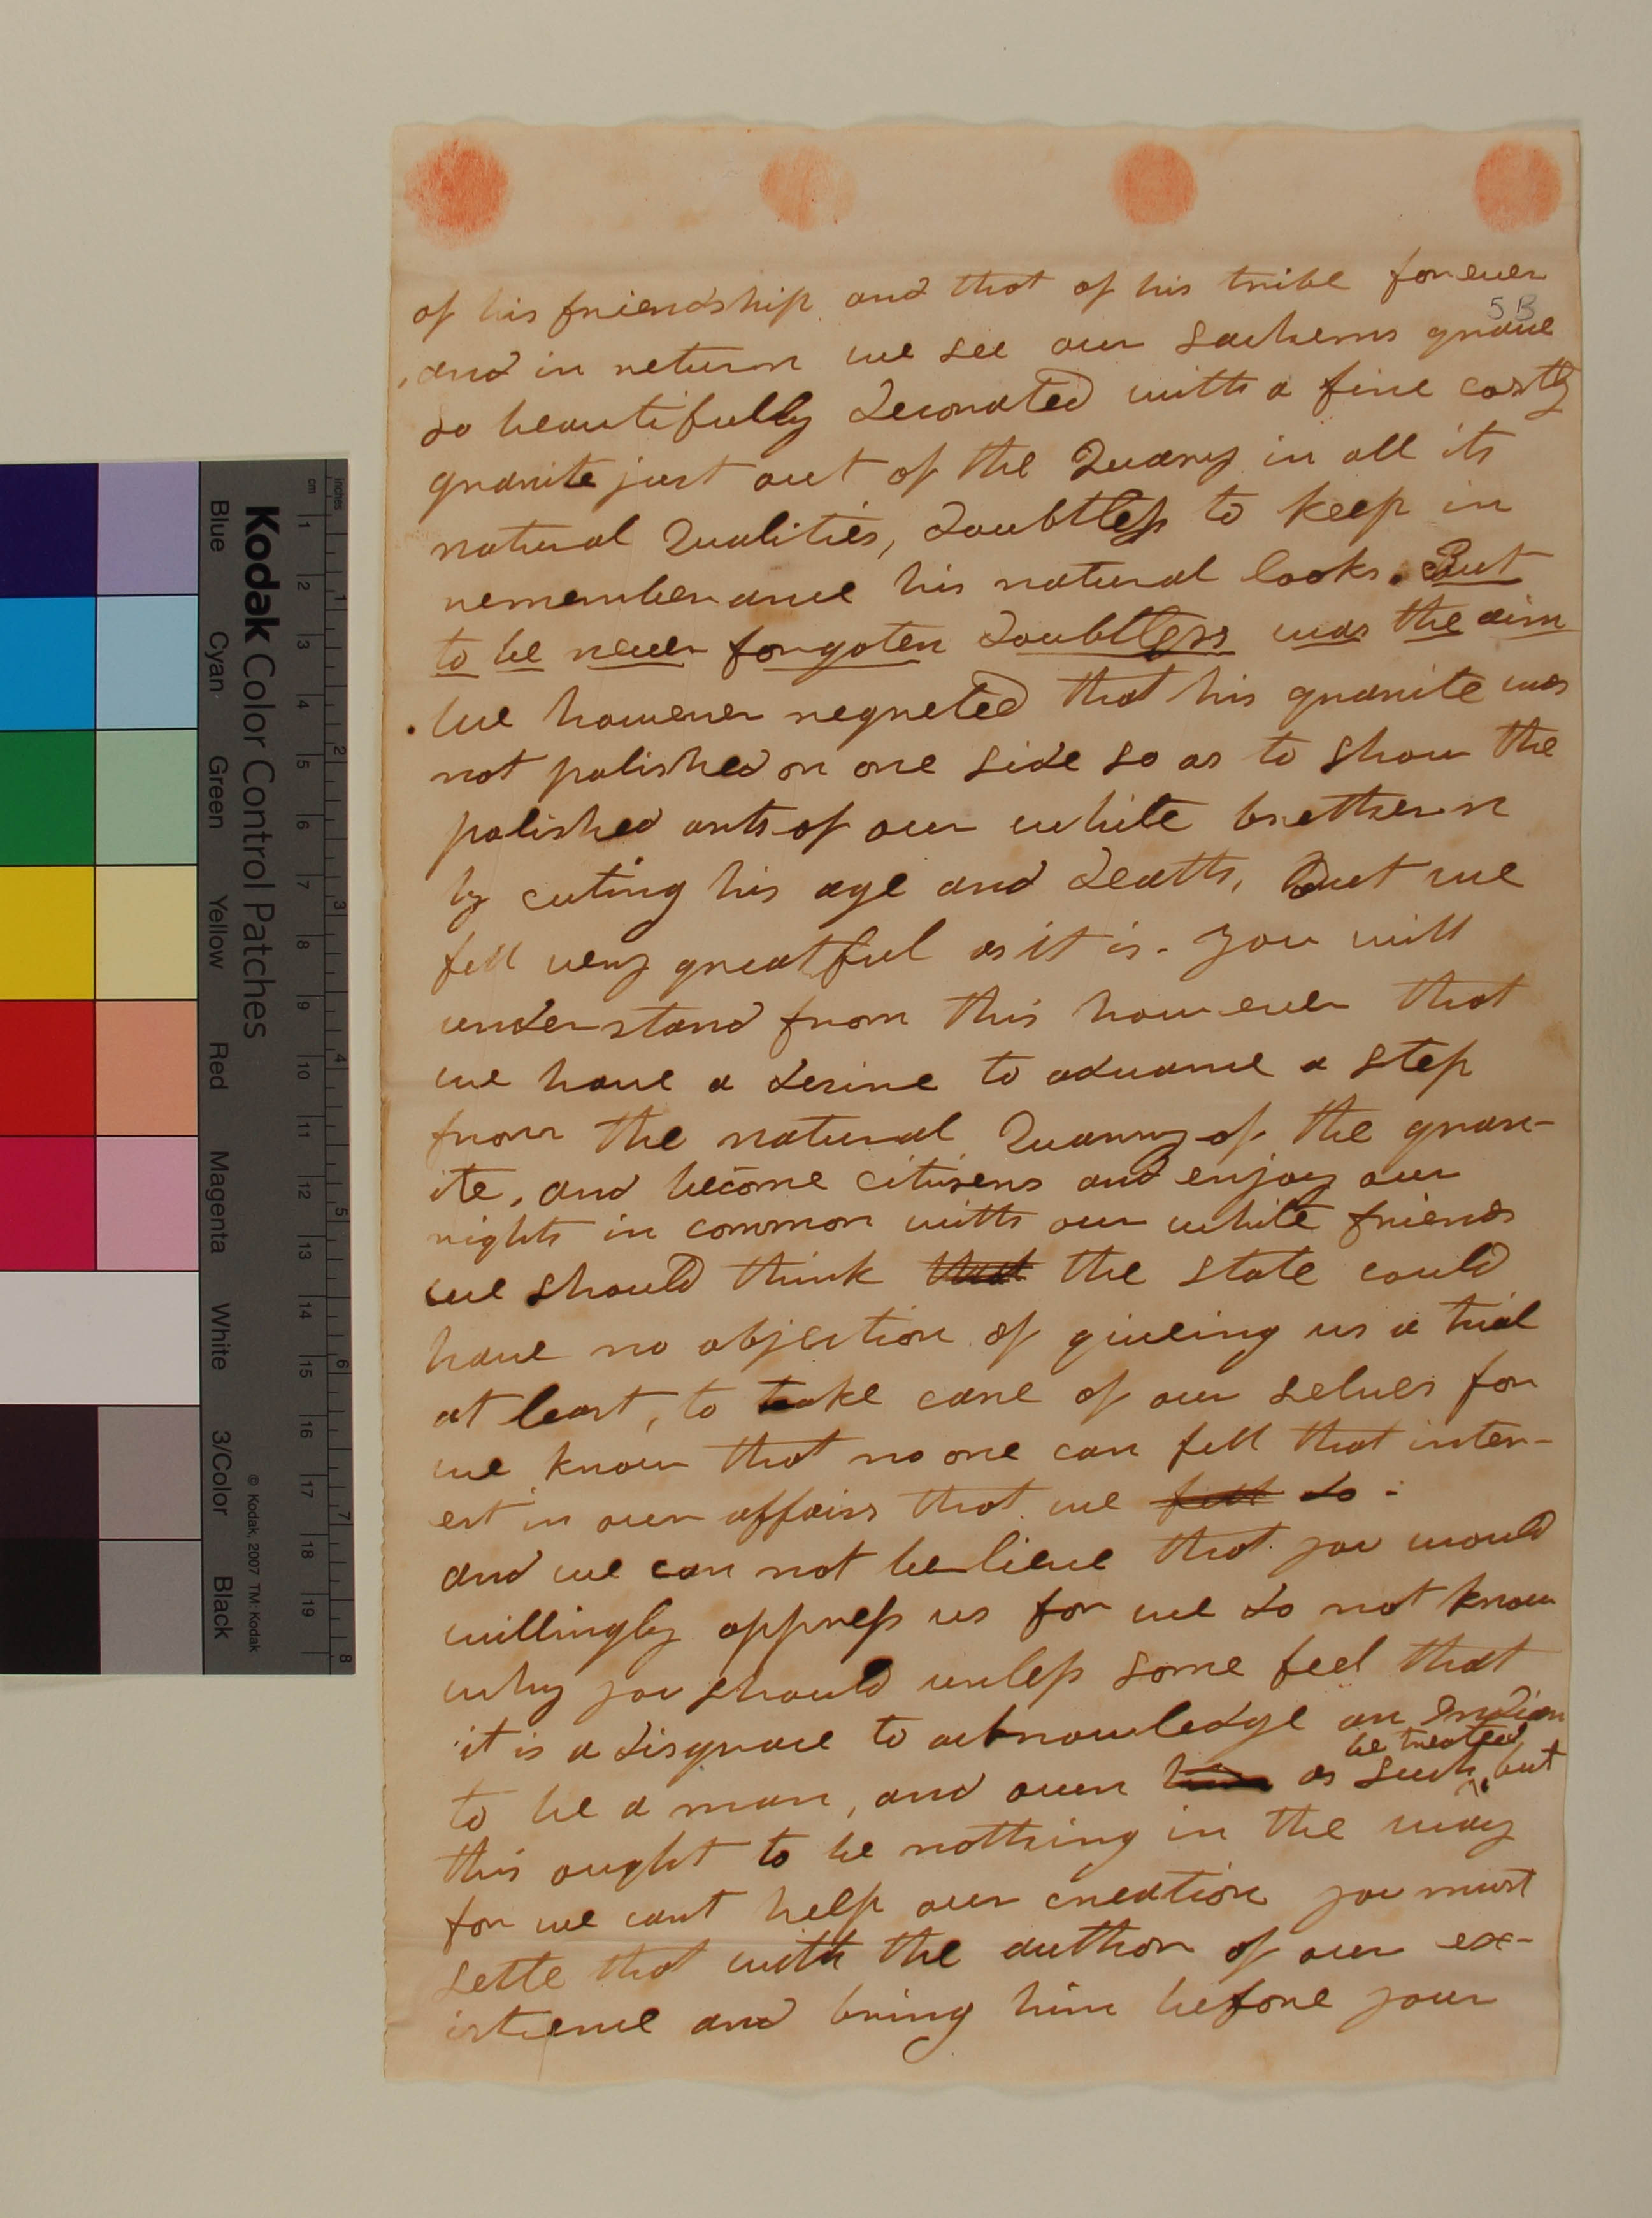 of his friendship and that of his tribe for ever
5 B
, and in return we see our sachems grave
so beautifully decorated with a fine costly
granite just out of the Quary in all its
natural Qualities, doubtless to keep in
rememberance his natural looks. But
to be never forgoten doubtless was the aim
. We however regreted that his granite was
not polished on one side so as to show the
polished arts of our white brethern
by cuting his age and death, But we
fell very greatful as it is. you will
understand from this however that
we have a desire to advance a step
from the natural Quarry of the gran-
ite, and become citisens and enjoy our
rights in common with our white friends
we should think that the state could
have no objection of giveing us a trial
at least, to take care of our selves for
we know that no one can fell that inter-
est in our affairs that we fell do -
and we can not believe that you would
willingly oppress us for we do not know
why you should unless some feel that
it is a disgrace to acknowledge an Indian
be treated
to be a man, and own him as such, but
this ought to be nothing in the way
for we cant help our creation you must
settle that with the author of our ex-
istience and bring him before your
Kodak Color Control Patches
Blue Cyan Green Yellow Red Magenta White 3/Color Black
© Kodak, 2007 TM: Kodak
cm 1 2 3 4 5 6 7 8 9 10 11 12 13 14 15 16 17 18 19
inches 1 2 3 4 5 6 7 8